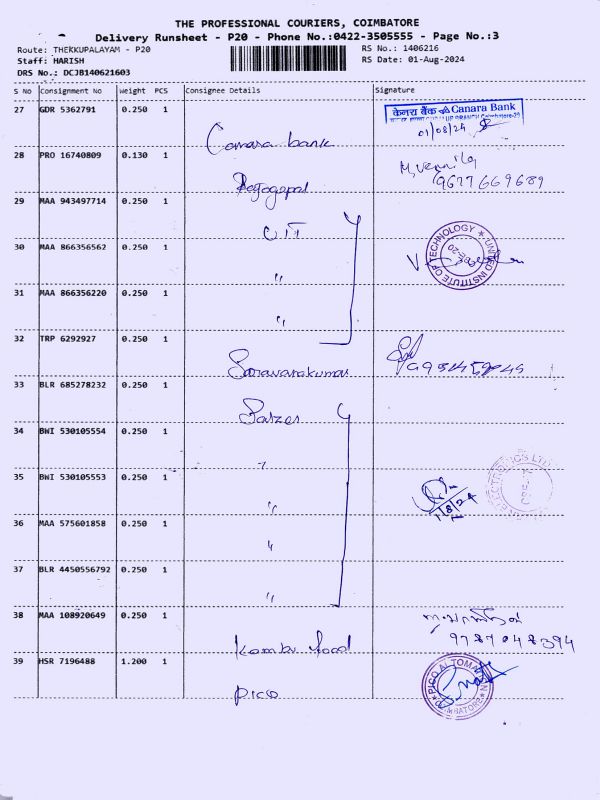 THE PROFESSIONAL COURIERS, COIMBATORE
Delivery Runsheet - P20 - Phone No.:0422-3505555 - Page No.:3
Route: THEKKUPALAYAM - P20
RS No.: 1406216
Staff: HARISH
RS Date: 01-Aug-2024
DRS No.: DCJB140621603
S No Consignment No Weight PCS Consignee Details Signature
27 GDR 5362791 0.250 1
केनरा बैंक Canara Bank
01/08/24
Canara bank
28 PRO 16740809 0.130 1
M.Vennila
9677669689
Rajagopal
29 MAA 943497714 0.250 1
CIT
30 MAA 866356562 0.250 1
"
UNITED INSTITUTE OF TECHNOLOGY
31 MAA 866356220 0.250 1
"
32 TRP 6292927 0.250 1
Saravanakumar
33 BLR 685278232 0.250 1
34 BWI 530105554 0.250 1
35 BWI 530105553 0.250 1
"
1/8/24
36 MAA 575601858 0.250 1
"
37 BLR 4450556792 0.250 1
"
38 MAA 108920649 0.250 1
9787048394
39 HSR 7196488 1.200 1
PICO